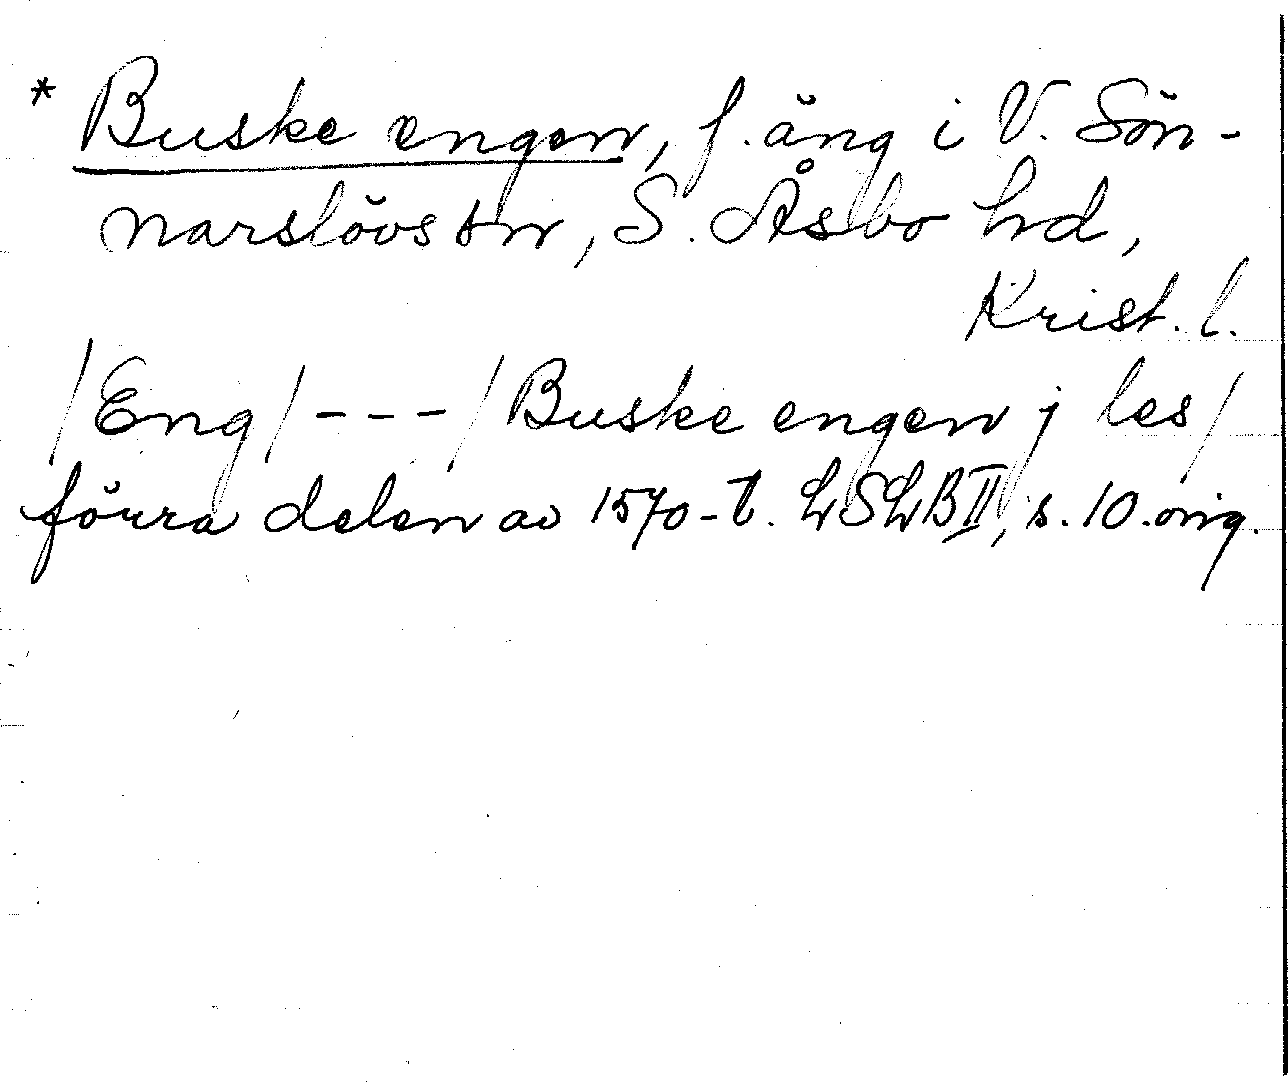 * Buske engen, f. äng i V. Sön-
narslövs sn, S. Åsbo hd,
Krist. l.
/Eng/ - - - /Buske engen j les/
förra delen av 1570-t. LSLB II, s. 10. orig.